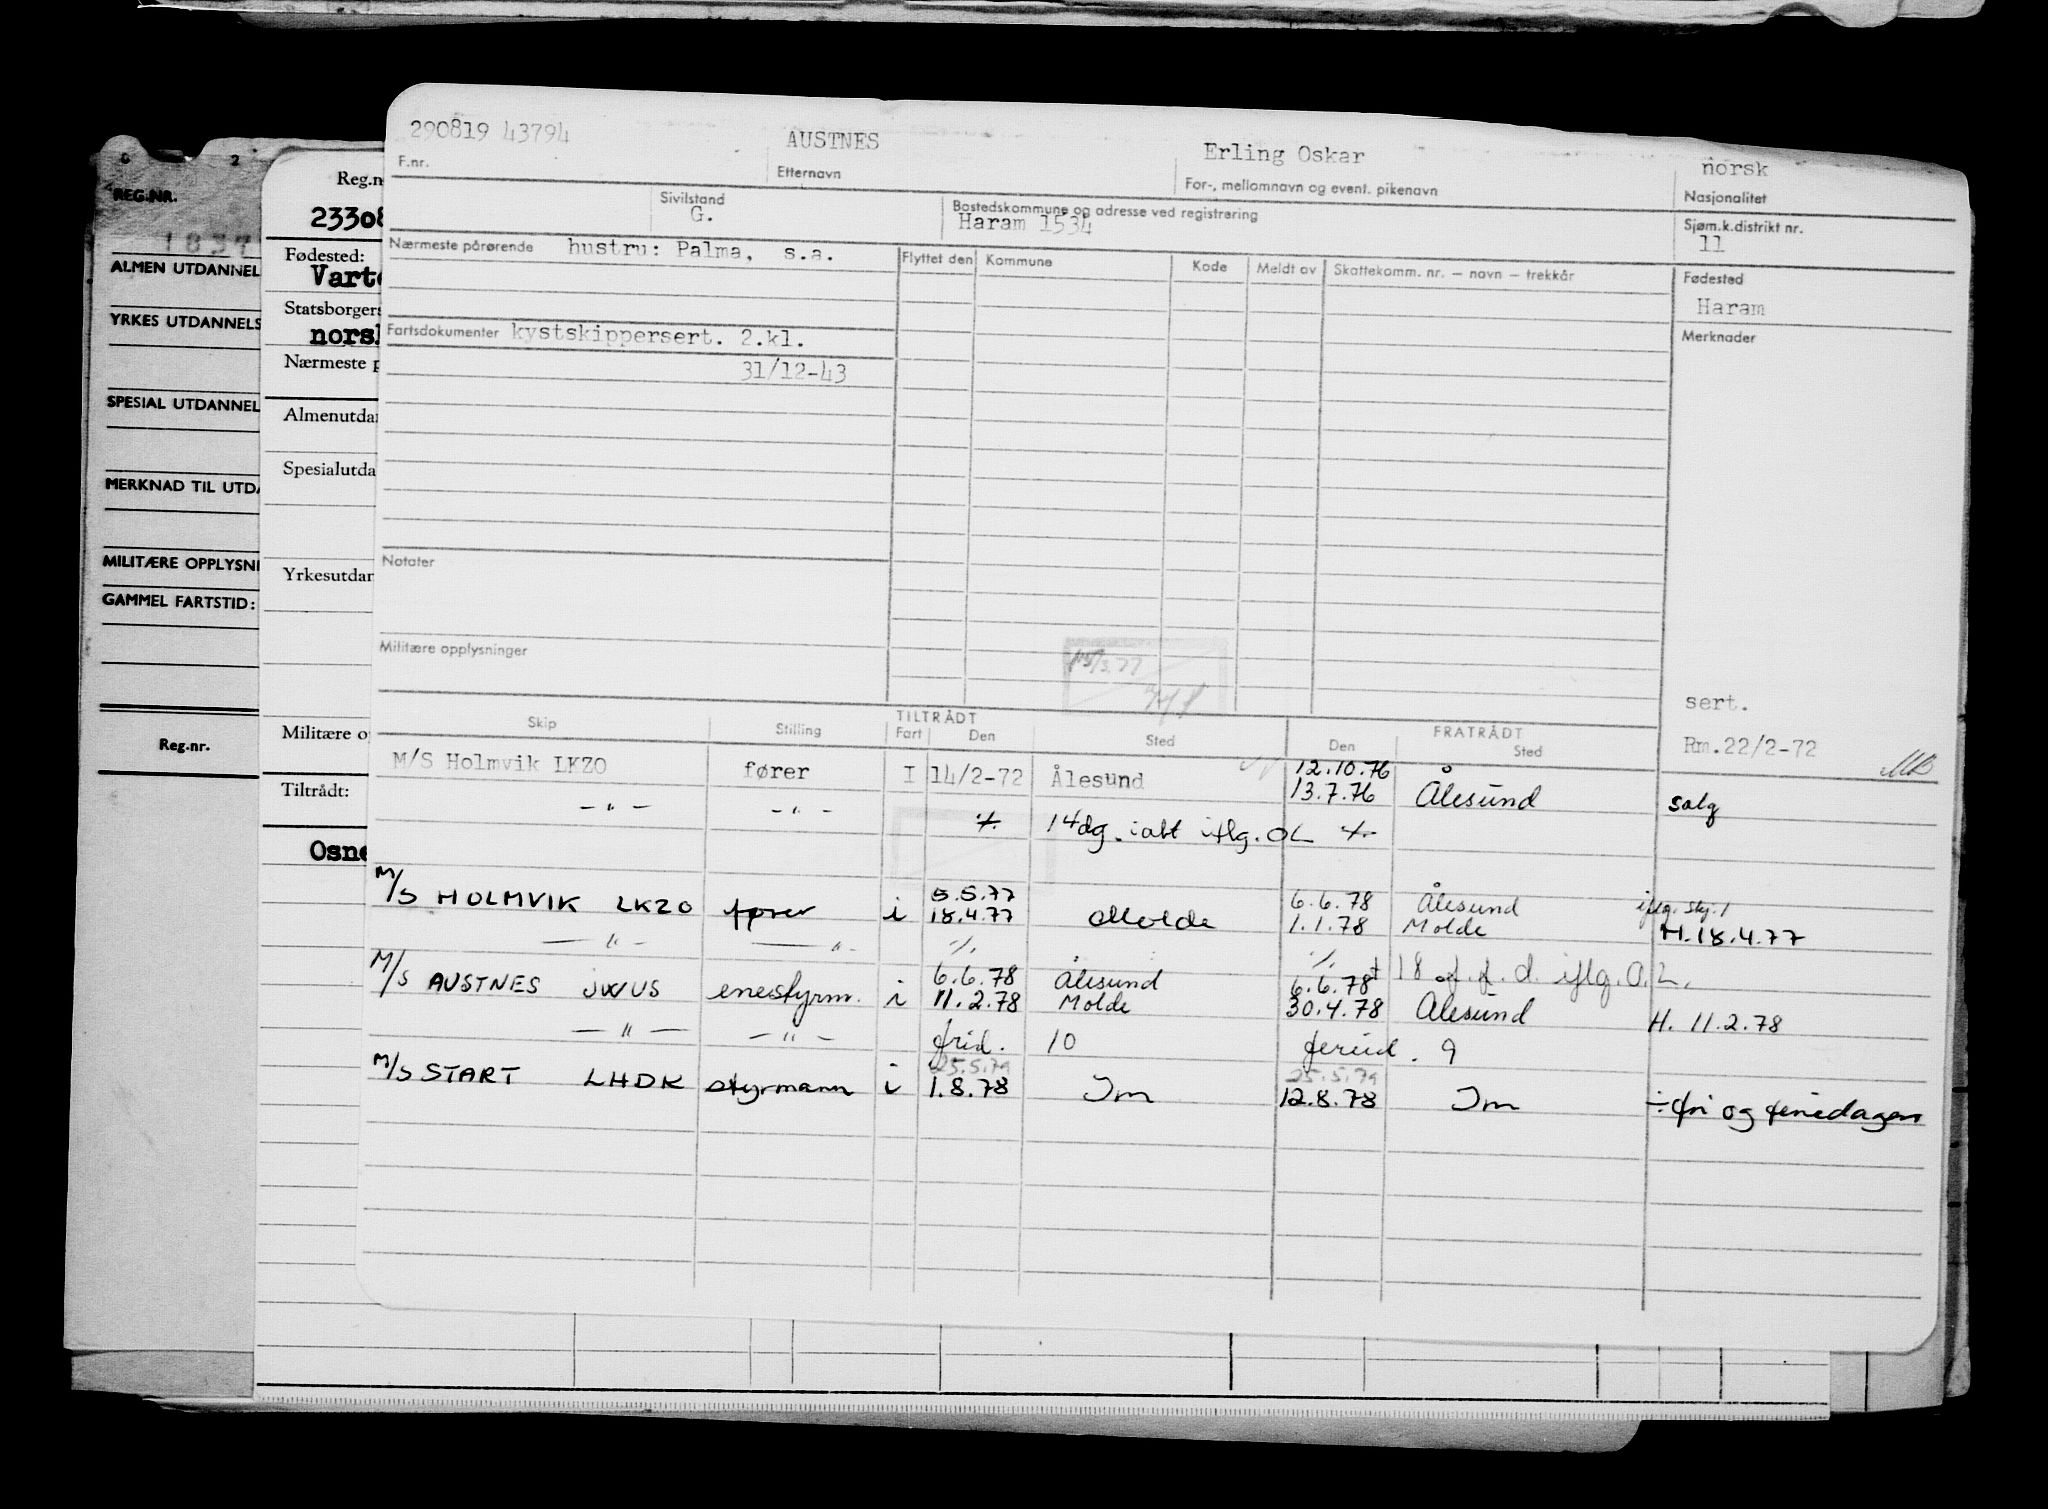 290819 43794 AUSTNES Erling Oskar norsk
F.nr. Etternavn For-, mellomnavn og event. pikenavn Nasjonalitet
Sivilstand Bostedskommune og adresse ved registrering Sjøm.k.distrikt nr.
G. Haram 1534 11
Nærmeste pårørende hustru: Palma, s.a. Flyttet den Kommune Kode Meldt av Skattekomm. nr. — navn — trekkår Fødested
Haram
Fartsdokumenter kystskippersert. 2.kl. Merknader
31/12-43
Notater
Militære opplysninger
sert.
Skip Stilling TILTRÅDT FRATRÅDT
Fart Den Sted Den Sted
Rm.22/2-72
M/S Holmvik LKZO fører I 14/2-72 Ålesund 12.10.76
13.7.76 Ålesund salg
— " — — " — 14dg. i alt iflg. OL
M/S HOLMVIK LKZO fører i 5.5.77 6.6.78 Ålesund iflg. skj. 1
18.4.77 Molde 1.1.78 Molde H. 18.4.77
— " — — " — ./. ./. + 18 f.f.d. iflg. O.L.
M/S AUSTNES JWUS enestyrm. i 6.6.78 Ålesund 6.6.78
11.2.78 Molde 30.4.78 Ålesund H. 11.2.78
— " — — " — frid. 10 feried. 9
M/S START LHDK styrmann i 25.5.79 25.5.79
1.8.78 Im 12.8.78 Im ÷ fri og feriedager
8 2
REG.NR.
1857
ALMEN UTDANNEL
YRKES UTDANNELS
SPESIAL UTDANNEL
MERKNAD TIL UTDA
MILITÆRE OPPLYSNI
GAMMEL FARTSTID:
Reg.nr.
Reg.n
23308
Fødested:
Varte
Statsborgers
norsk
Nærmeste p
Almenutdan
Spesialutda
Yrkesutdan
Militære o
Tiltrådt:
Osne